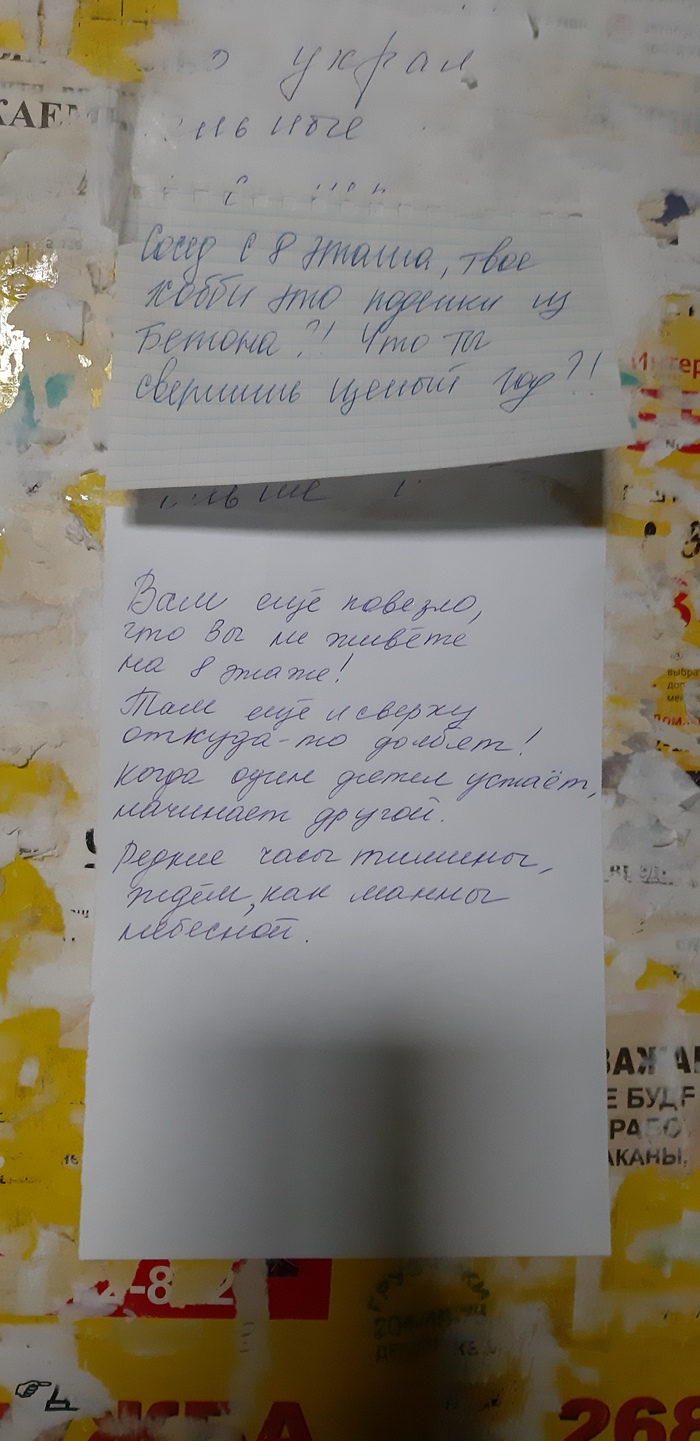 украл
КАЕМ
Сосед с 8 этажа, твое
хобби это поделки из
Бетона?! Что ты
сверлишь целый год?!
Интер
Вам ещё повезло,
что Вы не живёте
на 8 этаже!
Там ещё и сверху
откуда-то долбят!
Когда один дятел устаёт,
начинает другой.
Редкие часы тишины,
ждём, как манны
небесной.
Е БУДЕ
РАБО
АКАНЫ.
268